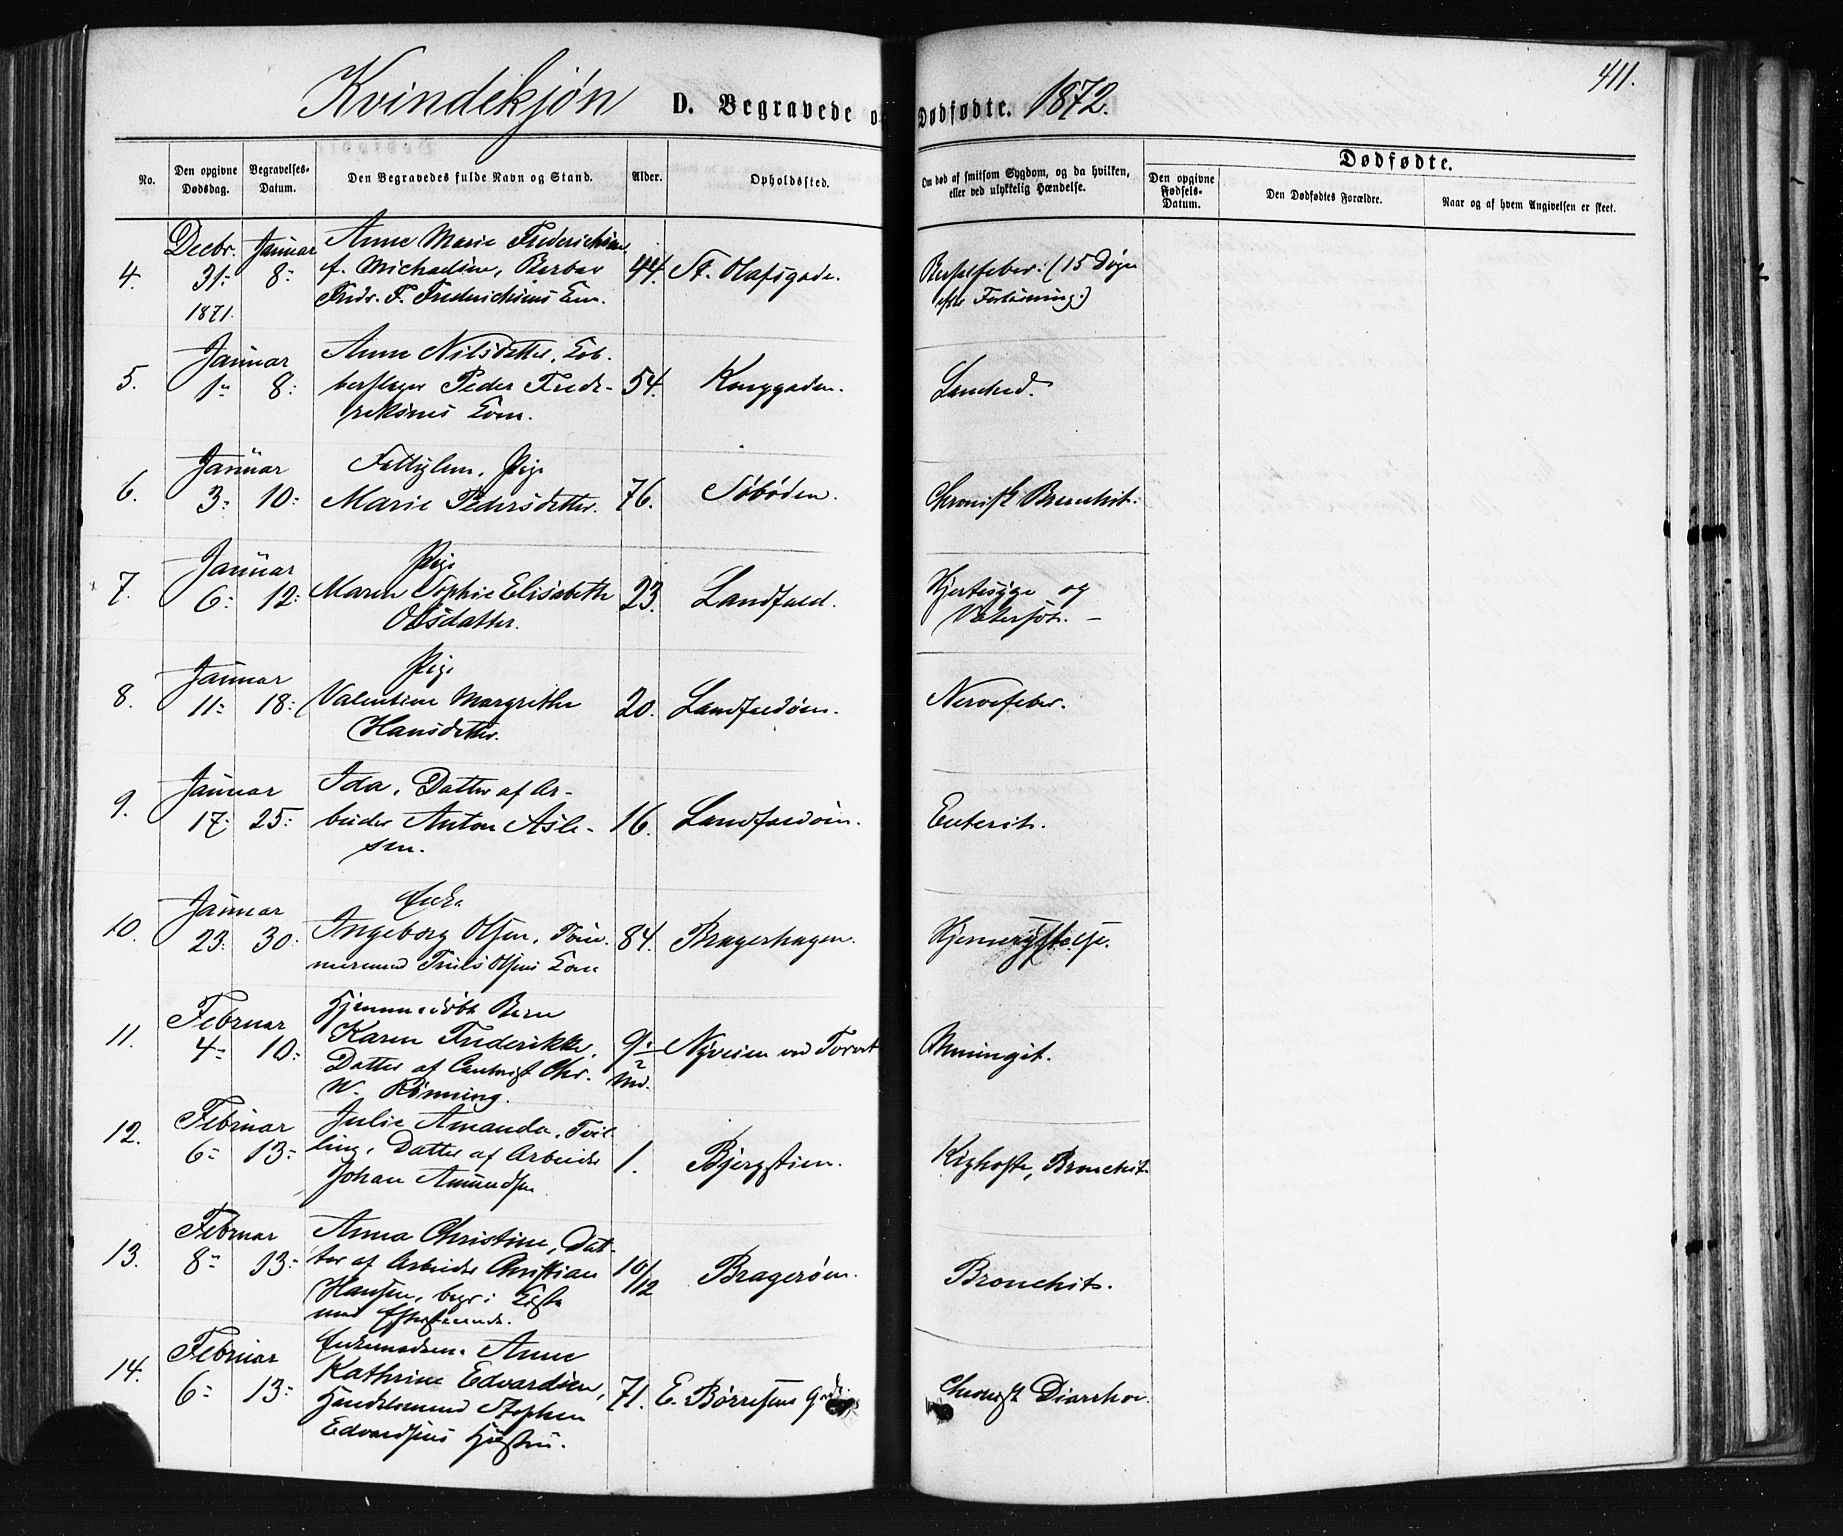 411.
Kvindekjøn D. Begravede og Dødfødte. 1872.
No.
Den opgivne Dødsdag.
Begravelses-Datum.
Den Begravedes fulde Navn og Stand.
Alder.
Opholdssted.
Om død af smitsom Sygdom, og da hvilken, eller ved ulykkelig Hændelse.
Dødfødte.
Den opgivne Fødsels-Datum.
Den Dødfødtes Forældre.
Naar og af hvem Angivelsen er skeet.
4.
Decbr. 31: 1871.
Januar 8:
Anne Marie Frederichsen
f. Michaelsen,
Fredr. F. Frederichsens Kone.
44.
St. Olafsgade.
Barselfeber: (15 Døgn
efter Forløsning.)
5.
Januar
1: 8:
Anne Nilsdatter, Kob-
berslager Peder Frede-
riksens Kone.
54.
Konggaden.
6.
Januar
3: 10:
Fattiglem, Pige
Marie Pedersdatter.
76.
Søbøden.
Chronisk Bronchit.
7.
Januar
6: 12:
Pige
Maren Sophie Elisabeth
Olsdatter.
23.
Landfald.
Hjertesyge og
Vatersot. –
8.
Januar
11: 18:
Pige
Valentine Margrethe
Hansdatter.
20.
Landfaldøen.
Nervefeber.
9.
Januar
17: 25:
Ida, Datter af Ar-
beider Anton Asle-
sen.
16.
Landfaldøen.
Enterit.
10.
Januar
23: 30:
Enke
Ingeborg Olsen, Tøm-
mermand Truls Olsens Kone
84.
Bragerhagen.
Hjernerystelse.
11.
Februar
4: 10:
Hjemmedøbt Barn
Karen Frederikke,
Datter af Chr.
W. Rønning.
9 1/2 Md.
Nyveien ved Torvet
Meningit.
12.
Februar
6: 13:
Julie Amanda, Tvil-
ling, Datter af Arbeider
Johan Amundsen
1.
Bjergstien.
Kighoste, Bronchit.
13.
Februar
8: 13:
Anna Christine, Dat-
ter af Arbeider Christian
Hansen, begr: Kiste
med Efterfølgende.
10/12
Bragerøen.
Bronchit.
14.
Februar
6: 13:
Enkemadam Anne
Kathrine Edvardsen,
Handelsmand Stephen
Edvardsens Hustru.
71.
E. Børresens Gade.
Chronisk Diarrhoe.